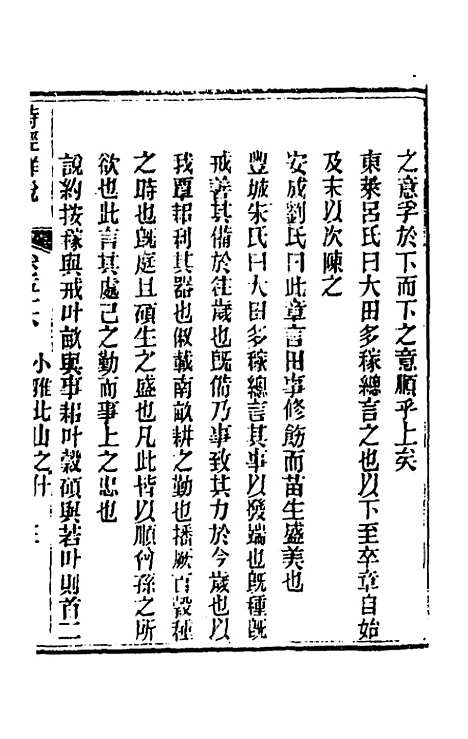 之意孚於下而下之意順乎上矣
東萊呂氏曰大田多稼總言之也以下至卒章自始
及末以次陳之
安成劉氏曰此章言田事修飭而苗生盛美也
豐城朱氏曰大田多稼總言其事以發端也旣種旣
戒善其備於往歲也旣備乃事致其力於今歲也以
我覃耜利其器也俶載南畝耕之勤也播厥百穀種
之時也旣庭且碩生之盛也凡此皆以順曾孫之所
欲也此言其處己之勤而事上之忠也
說約按稼與戒叶畝與事耜叶穀碩與若叶則首二
詩經詳說 小雅北山之什 三